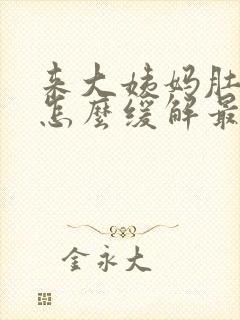 来大姨妈肚
怎麼缓解最
金永大